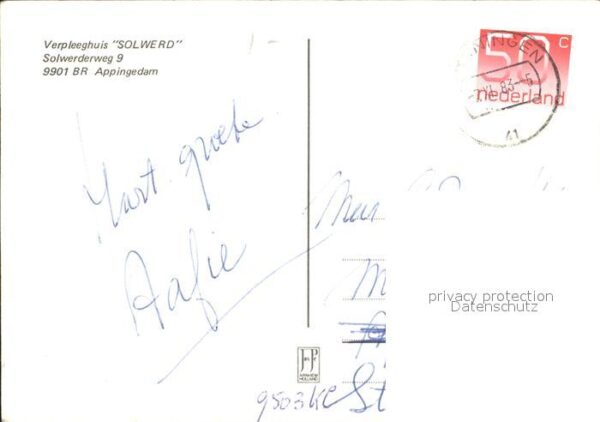 Verpleeghuis "SOLWERD"
Solwerderweg 9
9901 BR Appingedam
Hart. groete
Aafie
50 C
nederland
NINGEN
83-5
41
privacy protection
Datenschutz
JosPé
ARNHEM
HOLLAND
9503 KC St